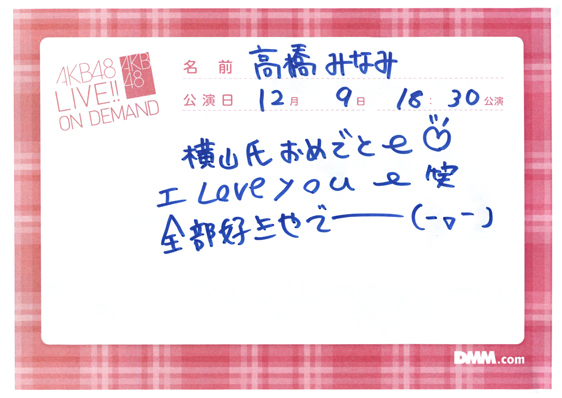 AKB48
LIVE!!
ON DEMAND
AKB
48
名 前 高橋みなみ
公演日 12月 9日 18:30公演
横山氏おめでとe♡
I Love you e 笑
全部好きやで――(-▽-)
DMM.com